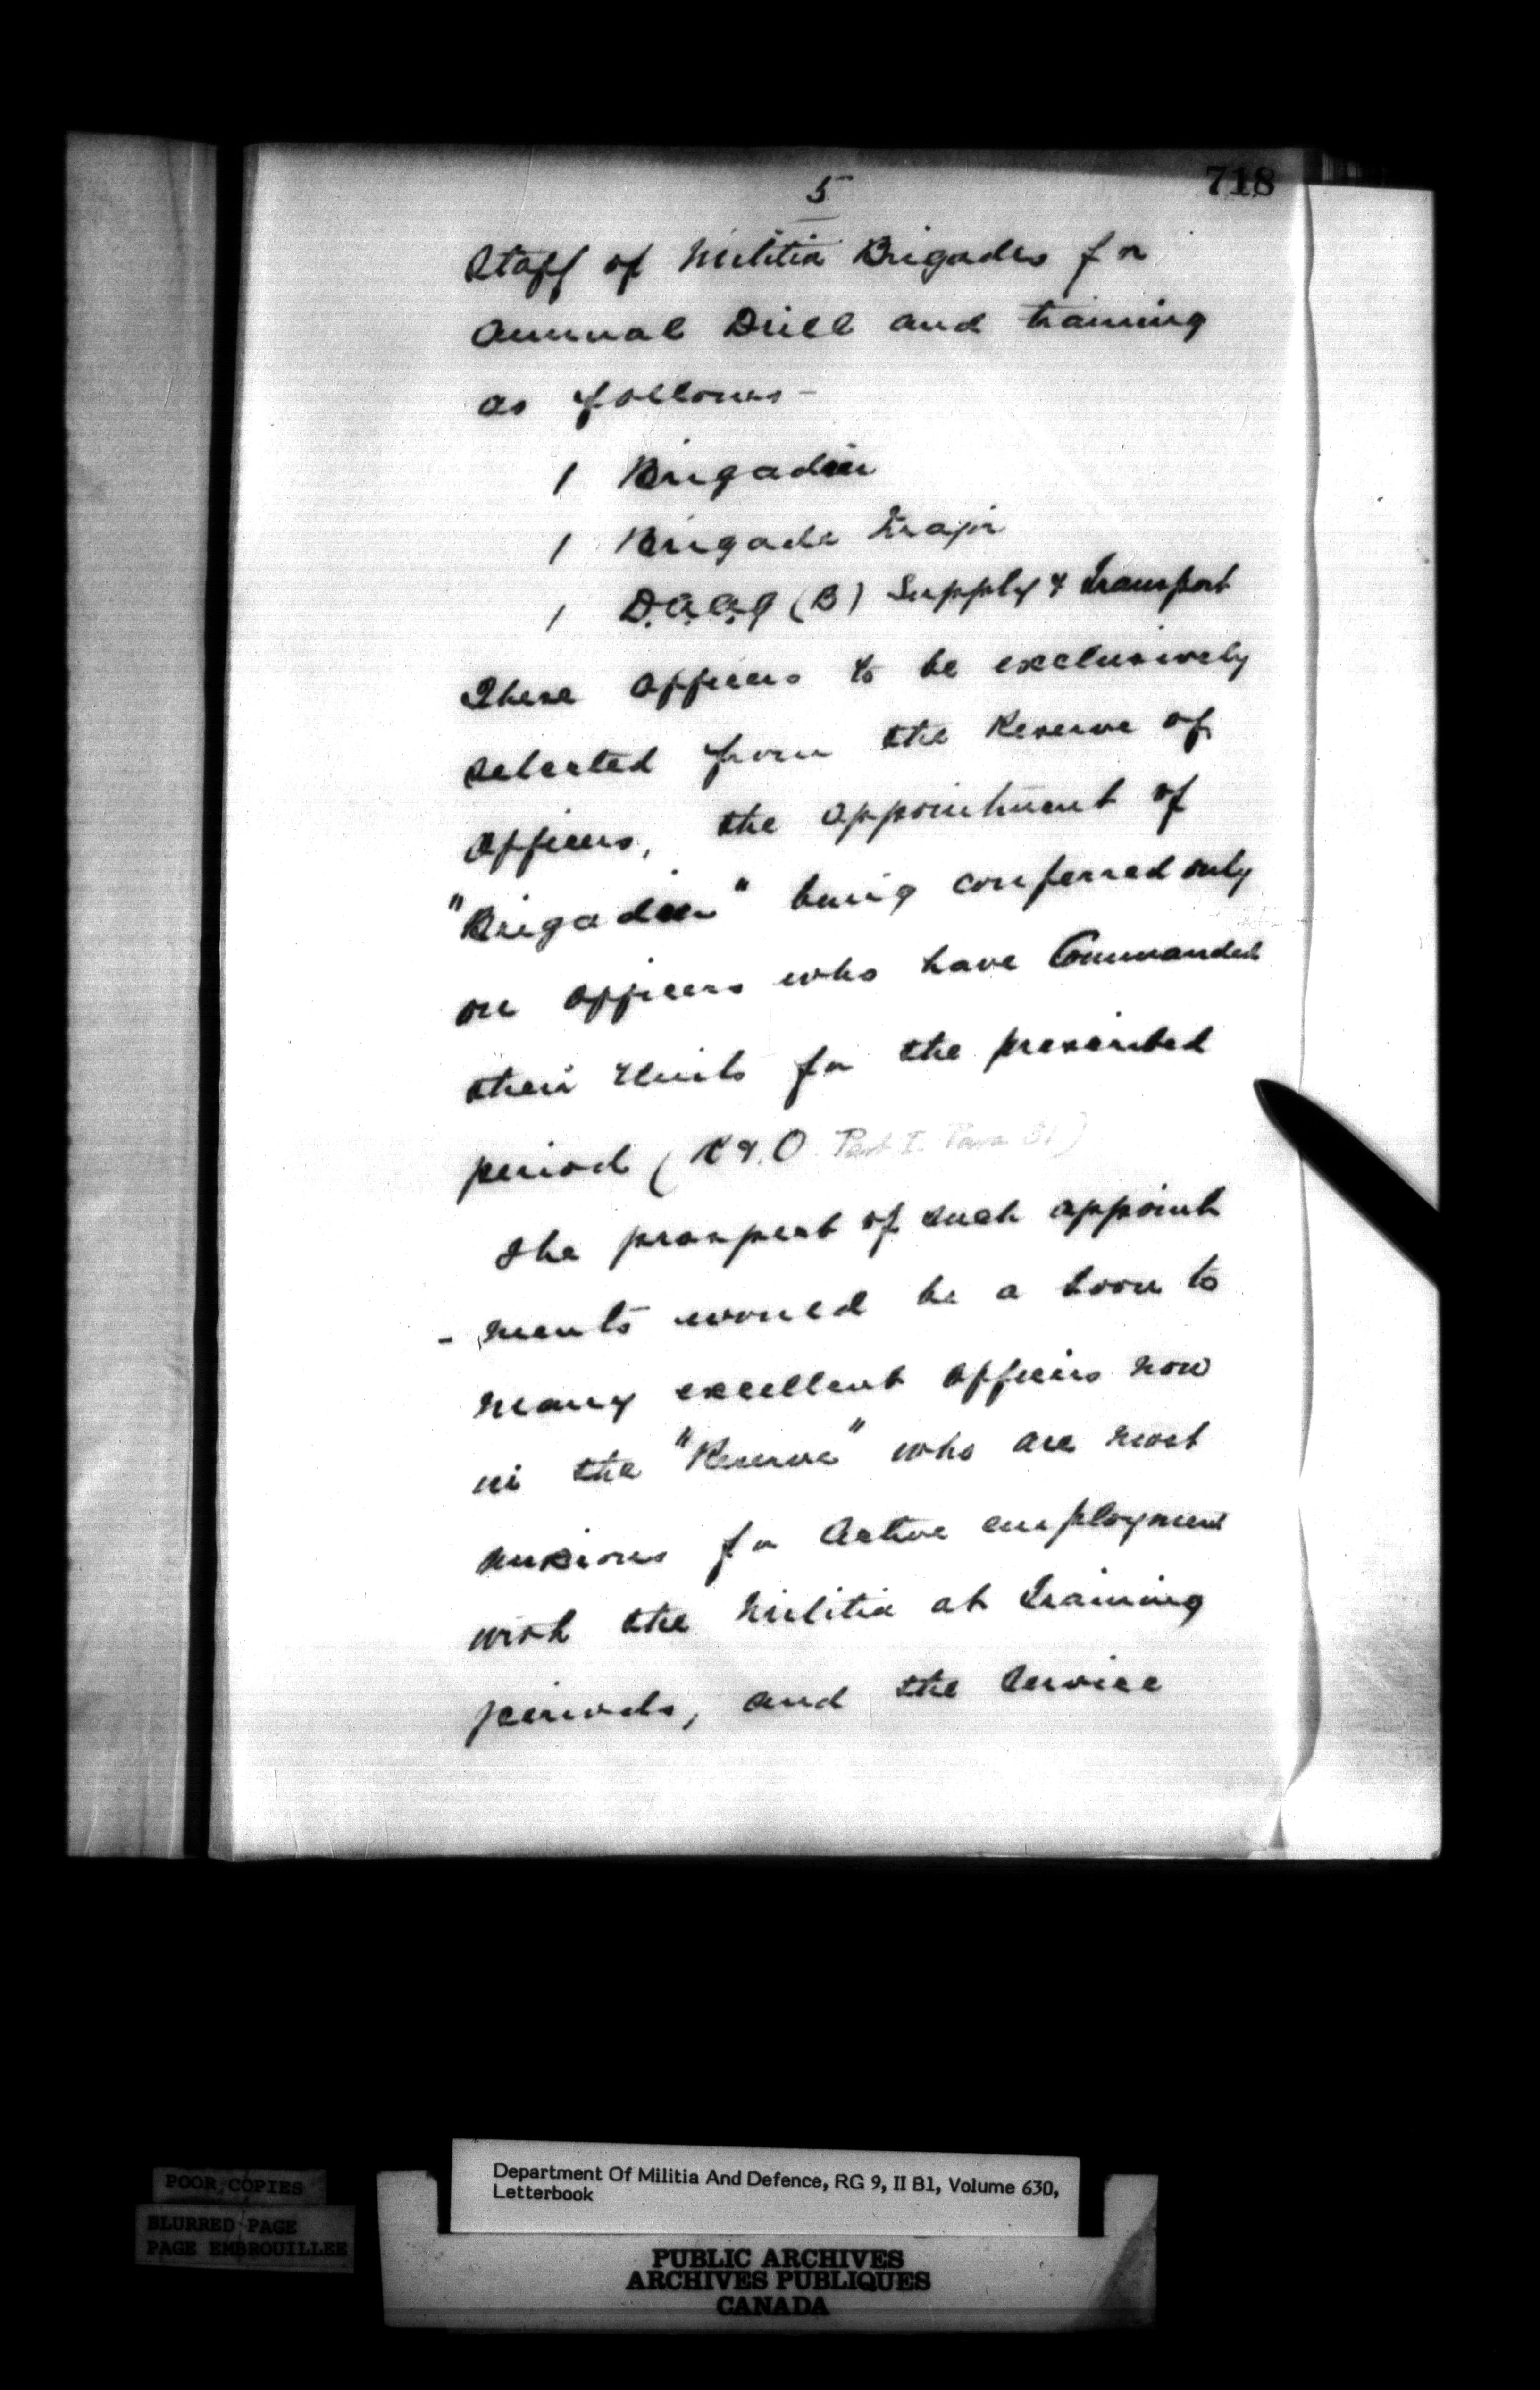 5
718
Staff of Militia Brigades for
Annual Drill and training
as follows -
1 Brigadier
1 Brigade Major
1 D.A.A.G (B) Supply & Transport
These officers to be exclusively
selected from the Reserve of
Officers, the appointment of
"Brigadier" being conferred only
on officers who have Commanded
their Units for the prescribed
period (R & O Part I. Para 31)
The prospect of such appoint
- ments would be a boon to
many excellent officers now
in the "Reserve" who are most
anxious for Active employment
with the Militia at Training
periods, and the Service
POOR COPIES
BLURRED PAGE
PAGE EMBROUILLEE
Department Of Militia And Defence, RG 9, II B1, Volume 630,
Letterbook
PUBLIC ARCHIVES
ARCHIVES PUBLIQUES
CANADA